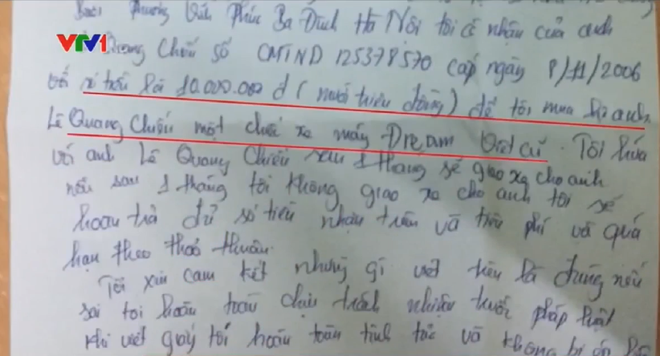 VTV1
Phường Vĩnh Phúc Ba Đình Hà Nội tôi có nhận của anh
Quang Chiến số CMTND 125378570 cấp ngày 8/11/2006
với số tiền là 10.000.000 đ (mười triệu đồng) để tôi mua hộ anh
Lê Quang Chiến một chiếc xe máy Dream Việt cũ. Tôi hứa
với anh Lê Quang Chiến sau 1 tháng sẽ giao xe cho anh
nếu sau 1 tháng tôi không giao xe cho anh tôi sẽ
hoàn trả đủ số tiền nhận trên và tiền phí và quá
hạn theo thoả thuận.
Tôi xin cam kết những gì viết trên là đúng nếu
sai tôi hoàn toàn chịu trách nhiệm trước pháp luật
khi viết giấy tôi hoàn toàn tỉnh táo và không bị ép